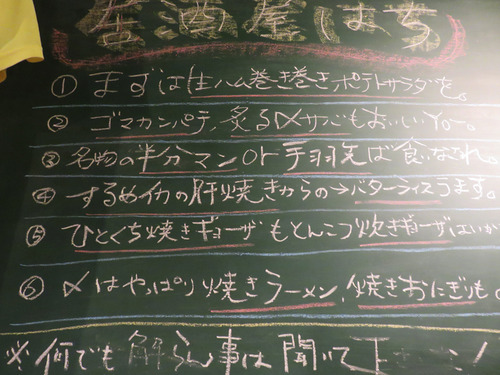 居酒屋はち
① まずは生ハム巻き巻きポテトサラダを。
② ゴマカンパチ、炙る〆サバもおいしいYo〜。
③ 名物の半分マンor手羽先ば食いなされ。
④ するめイカの肝焼きからの→バターライスうます。
⑤ ひとくち焼きギョーザもとんこつ炊きギョーザはいか
⑥ 〆はやっぱり焼きラーメン、焼きおにぎりも。
※何でも解らん事は聞いて下さ